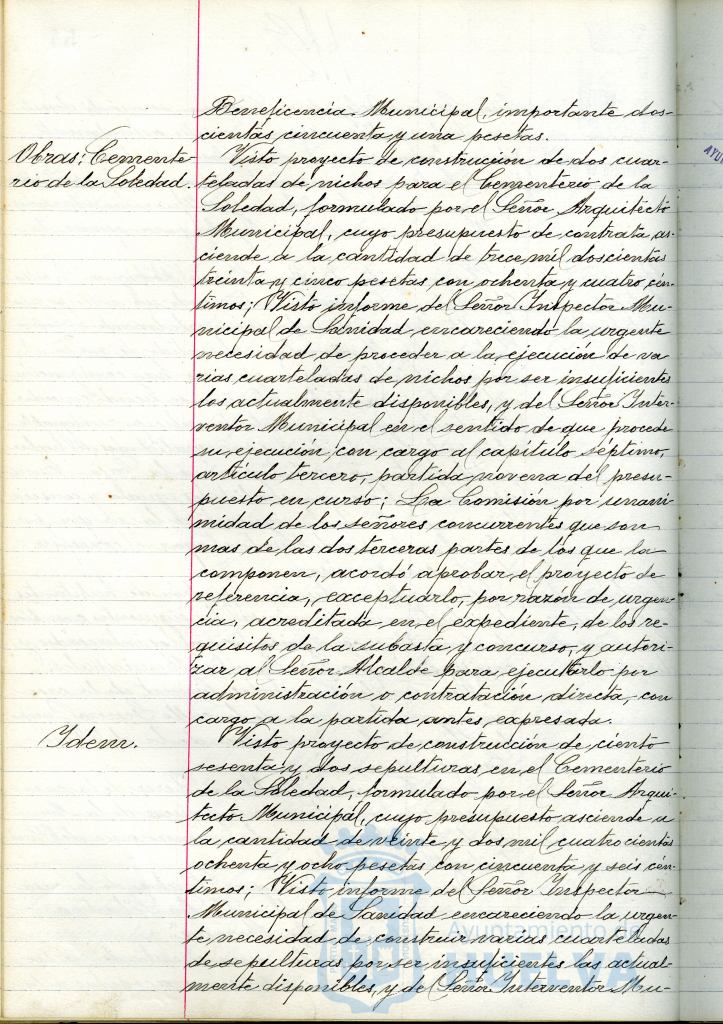 Beneficencia Municipal, importante dos-
cientas cincuenta y una pesetas.
Obras; Cemente-
rio de la Soledad.
Visto proyecto de construcción de dos cuar-
teladas de nichos para el Cementerio de la
Soledad, formulado por el Señor Arquitecto
Municipal, cuyo presupuesto de contrata as-
ciende a la cantidad de trece mil doscientas
treinta y cinco pesetas con ochenta y cuatro cén-
timos; Visto informe del Señor Inspector Mu-
nicipal de Sanidad encareciendo la urgente
necesidad de proceder a la ejecución de va-
rias cuarteladas de nichos por ser insuficientes
los actualmente disponibles, y del Señor Inter-
ventor Municipal en el sentido de que procede
su ejecución con cargo al capítulo séptimo,
artículo tercero, partida novena del presu-
puesto en curso; La Comisión por unani-
midad de los señores concurrentes que son
mas de las dos terceras partes de los que la
componen, acordó aprobar el proyecto de
referencia, exceptuarlo, por razón de urgen-
cia, acreditada en el expediente, de los re-
quisitos de la subasta y concurso, y autori-
zar al Señor Alcalde para ejecutarlo por
administración o contratación directa, con
cargo a la partida antes expresada.
Idem.
Visto proyecto de construcción de ciento
sesenta y dos sepulturas en el Cementerio
de la Soledad, formulado por el Señor Arqui-
tecto Municipal, cuyo presupuesto asciende a
la cantidad de veinte y dos mil cuatrocientas
ochenta y ocho pesetas con cincuenta y seis cén-
timos; Visto informe del Señor Inspector
Municipal de Sanidad encareciendo la urgen-
te necesidad de construir varias cuarteladas
de sepulturas por ser insuficientes las actual-
mente disponibles, y del Señor Interventor Mu-
Ayuntamiento de
HUELVA